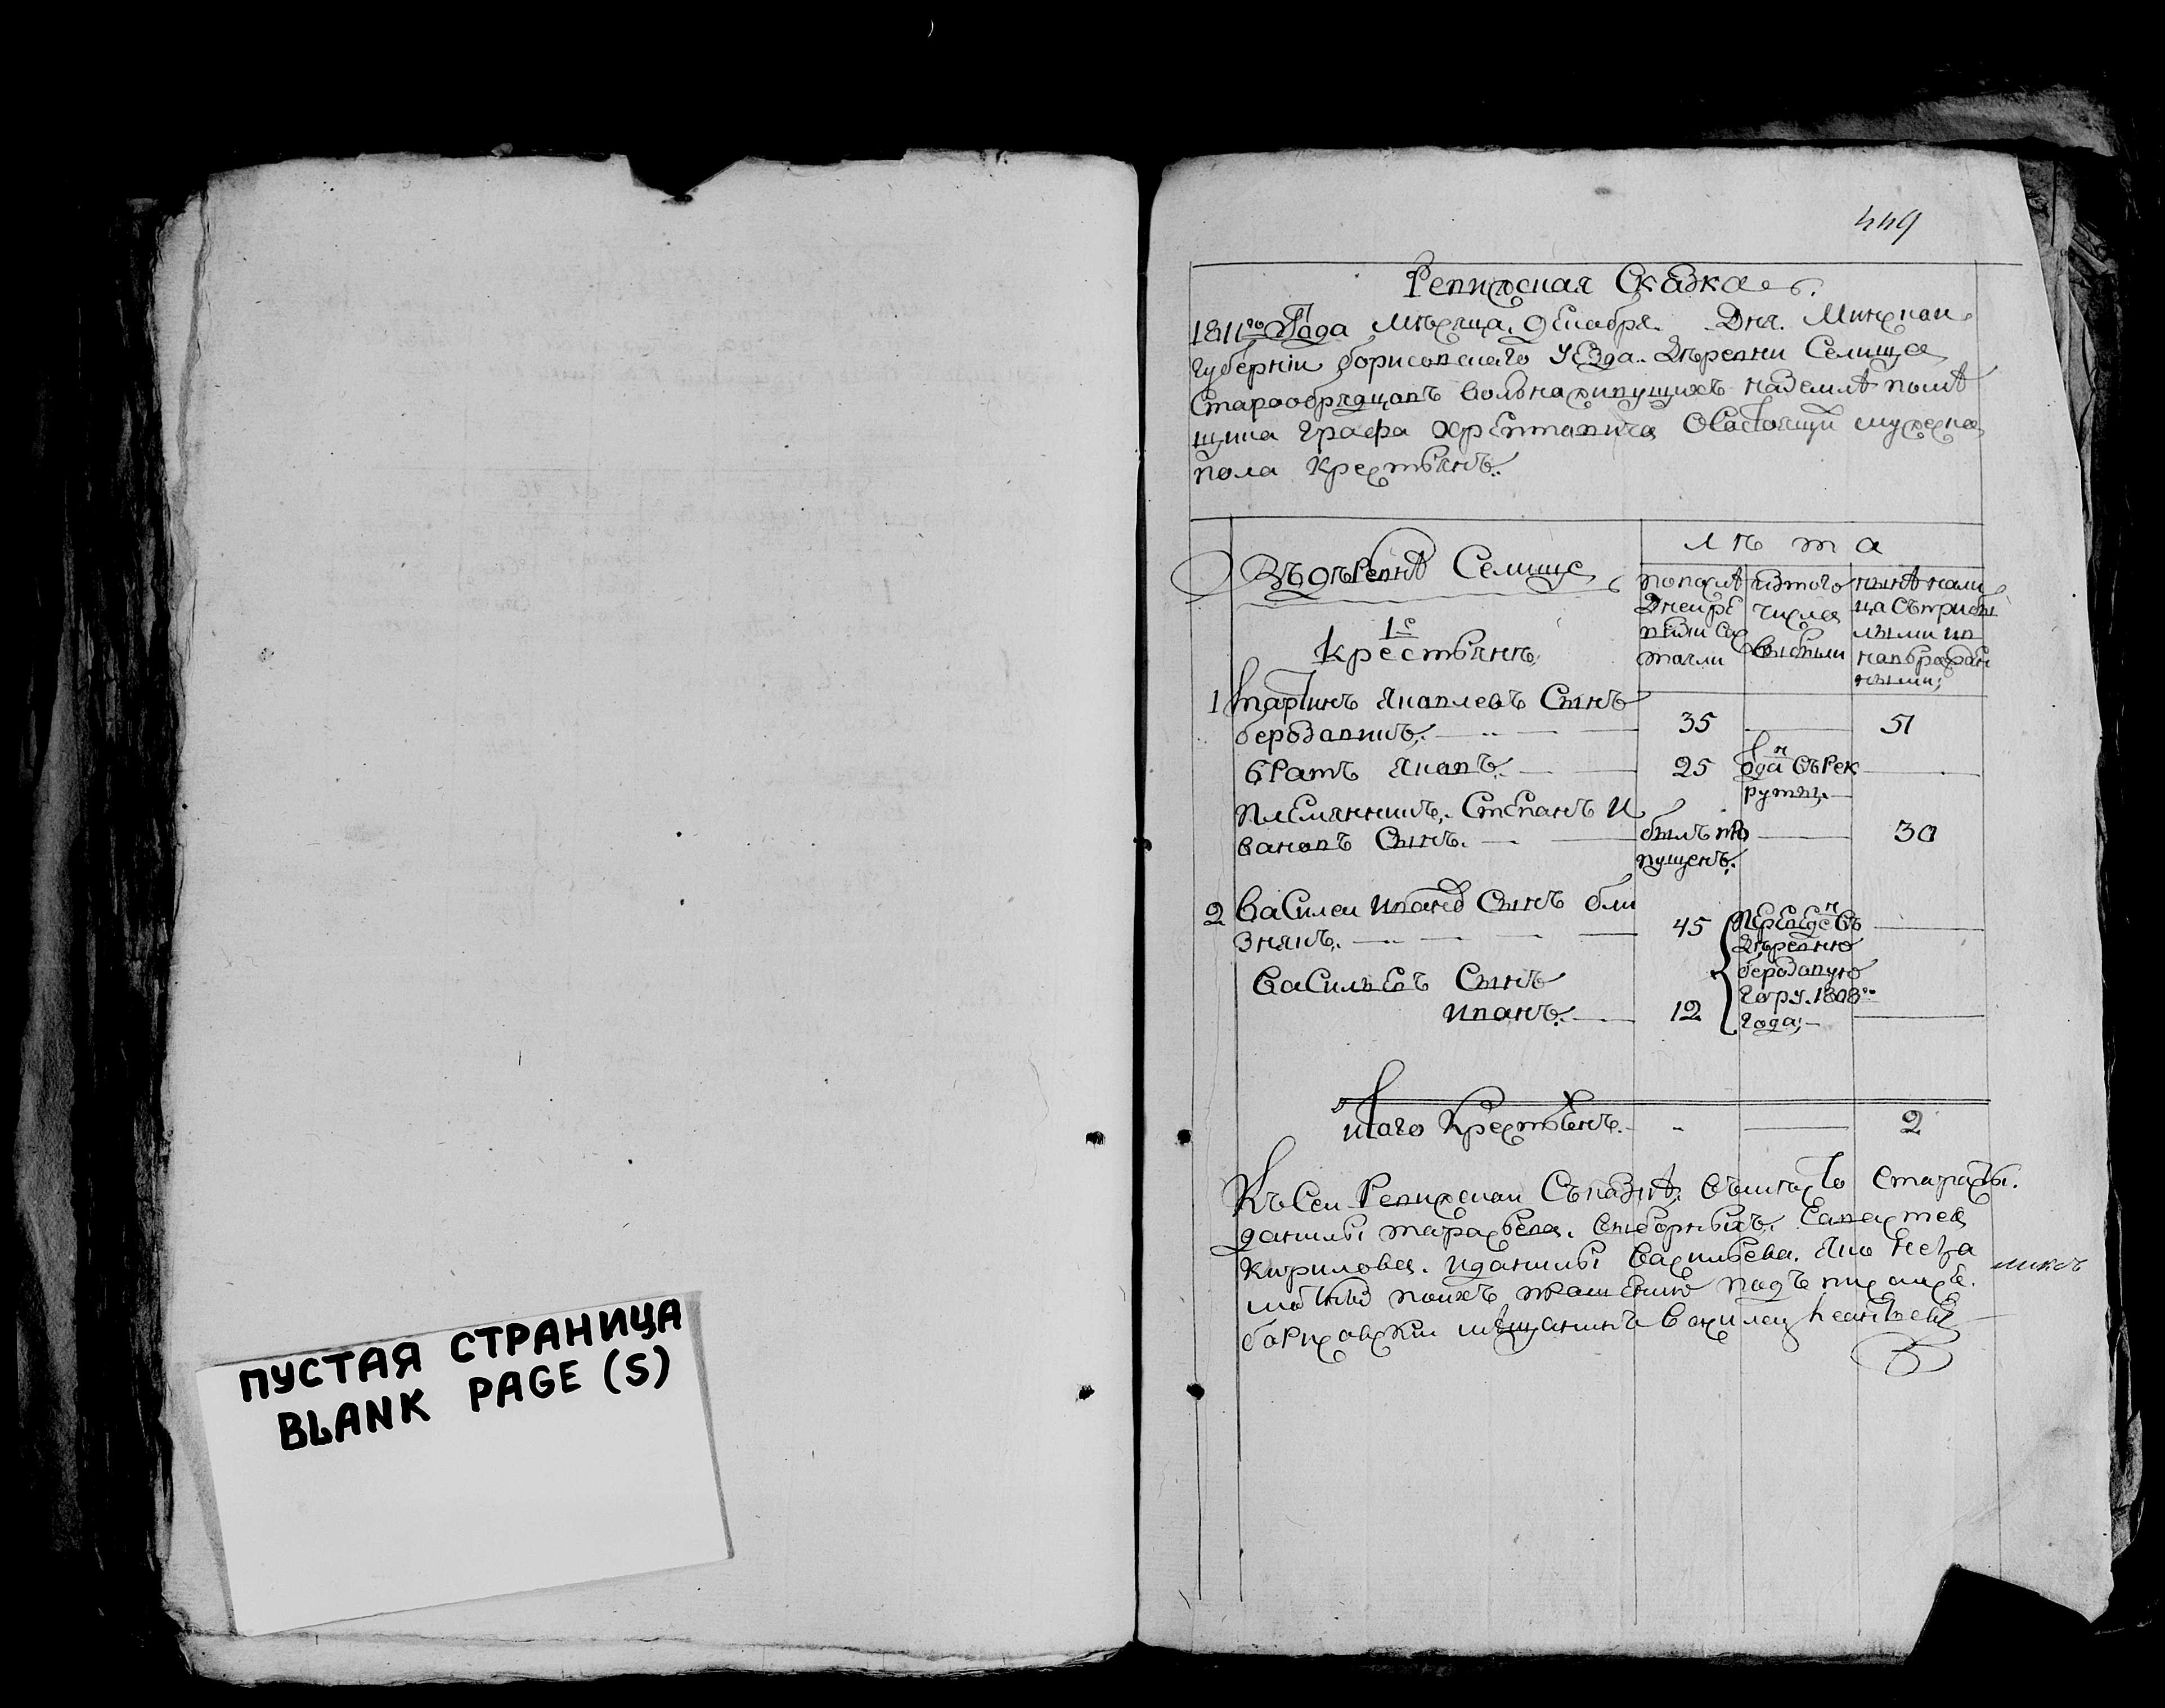 ПУСТАЯ СТРАНИЦА
BLANK PAGE (S)
449
Ревизская Сказка
1811го Года Мѣсяца Декабря Дня. Минской
губерніи борисовскаго уезда. Дѣревни Селища
Старообрядцовъ вольнаживущихъ наземлѣ помѣ
щика графа Хрептовича Осастоящи мужеска
пола крестьянъ.
Въдѣревнѣ Селище
1е
крестьянъ
лѣта
попослѣ
Дней ре
визіи сос
тояли
изтого
числа
выбыли
нынѣ нали
ца съприбы
лыми ип
новорожден
ными;
1 мартинъ Яковлевъ Сынъ
берозовикъ. 35 51
братъ Яковъ. 25 вда съ Рек
руты.
племянникъ. Степанъ И
вановъ Сынъ. былъ про 30
пущенъ.
2 василеи ивановъ Сынъ бли
знякъ. 45 перевед съ
Дѣревню
берозовую
гору. 1808го
года;
василиевъ Сынъ
иванъ. 12
итого крестьянъ. - 2
Къ Сеи Ревизскои Съказкѣ. вместо старосты.
данилы тарасьева. выборныхъ. савастея
кирилова. иданилы васильева. яко неза
ликъ
поихъ прошению подъписался.
борисовски мещанинъ василеи